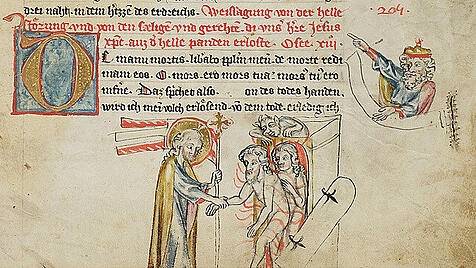 drei naht in dem hertzen des erdreichs. Weissagung von der helle
störung und von den sælige und gerehte di uns hre Jesus
xpc auz d helle panden erloste. Osee. xiij.
204
De manu mortis libabo pplm meū. de morte redi
mam eos. O mors ero mors tua. morsus tu ero
infne. Daz spichet also. von des todes handen
wird ich mei volch erlösend vō dem tode erledig ich